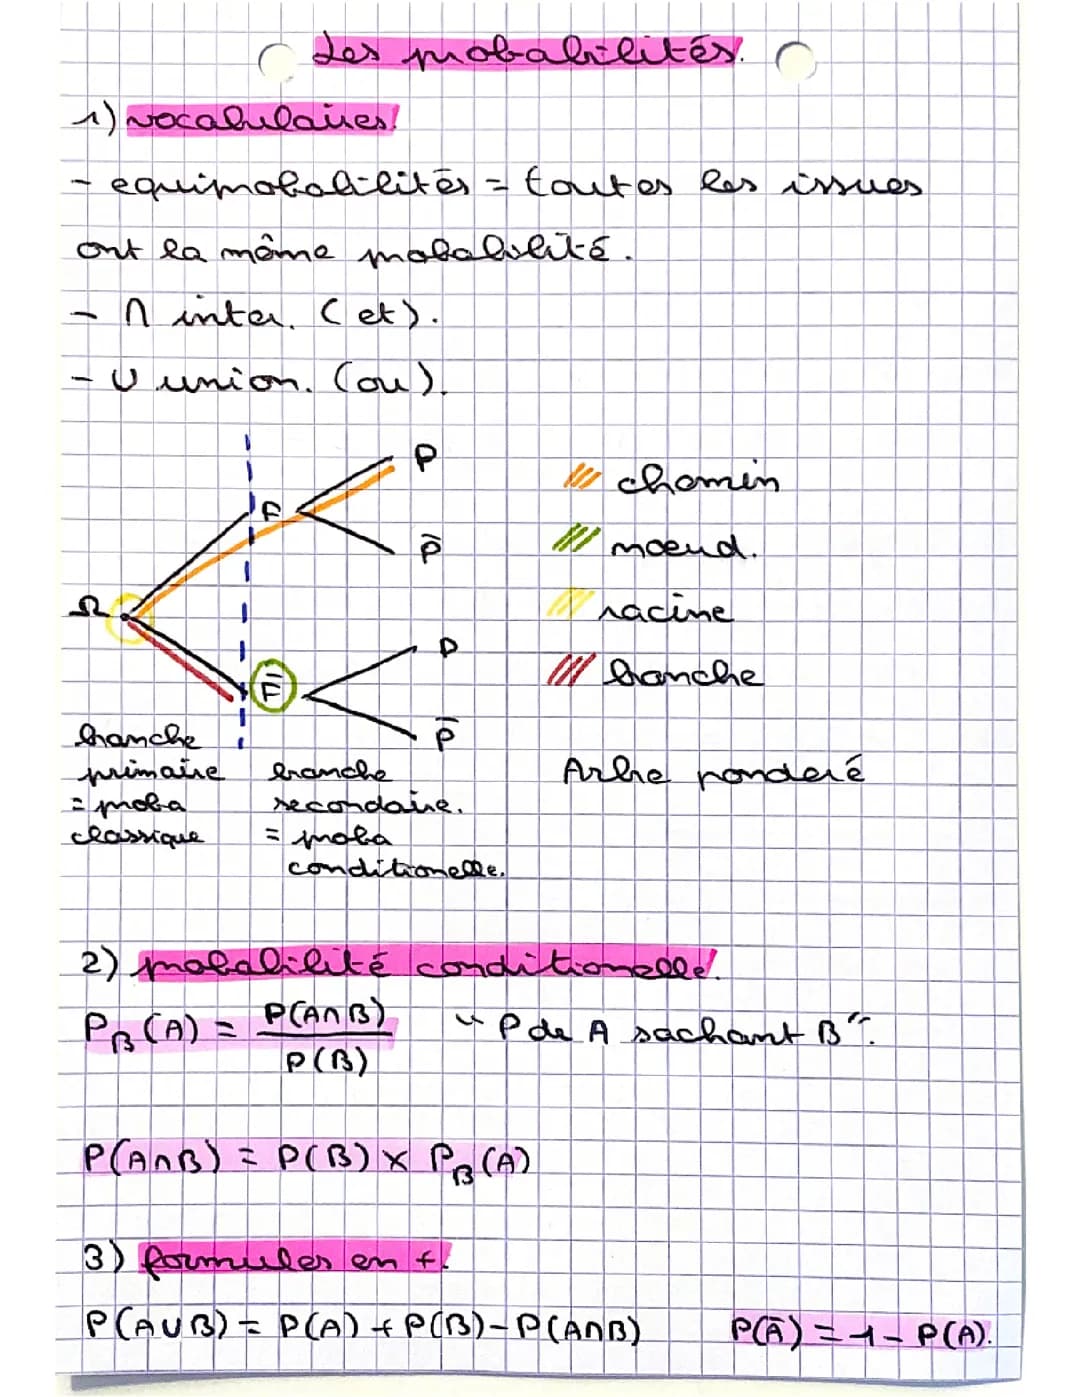 Les probabilités.
1) vocabulaires!
- equiprobabilités = toutes les issues
ont la même probabilité.
- ∩ inter. (et).
- U union. (ou).
P
F
P̄
Ω
P
F̄
P̄
chemin
noeud.
racine
branche
branche
primaire
= proba
classique
branche
secondaire.
= proba
conditionelle.
Arbre ponderé
2) probabilité conditionelle!
P_B(A) = P(A∩B) / P(B) "P de A sachant B".
P(A∩B) = P(B) × P_B(A)
3) formules en +!
P(AUB) = P(A) + P(B) - P(A∩B) P(Ā) = 1 - P(A).